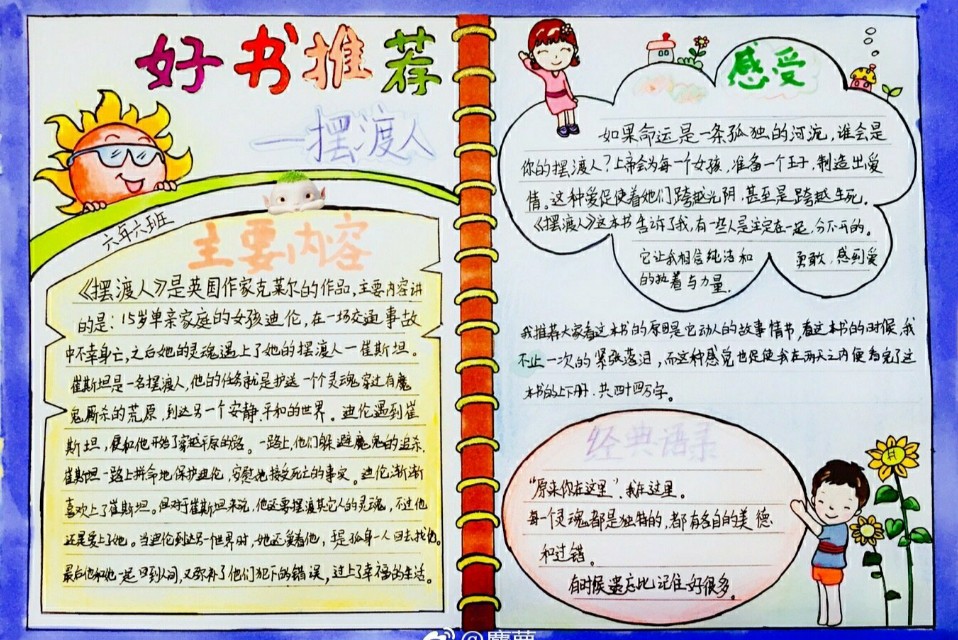 好书推荐
—摆渡人
六年六班
主要内容
《摆渡人》是英国作家克莱尔的作品,主要内容讲
的是:15岁单亲家庭的女孩迪伦,在一场交通事故
中不幸身亡,之后她的灵魂遇上了她的摆渡人—崔斯坦.
崔斯坦是一名摆渡人,他的任务就是护送一个个灵魂穿过有魔
鬼厮杀的荒原,到达另一个安静.平和的世界。迪伦遇到崔
斯坦,便和他开始了穿越荒原的路。一路上,他们躲避魔鬼的追杀.
崔斯坦一路上拼命地保护迪伦,安慰她接受死亡的事实。迪伦渐渐
喜欢上了崔斯坦。但对于崔斯坦来说,他还要摆渡其它人的灵魂,不过他
还是爱上了她。当迪伦到达另一个世界时,她还爱着他,于是孤身一人回去找他。
最后他和她一起回到人间,又弥补了他们犯下的错误,过上了幸福的生活。
感受
如果命运是一条孤独的河流,谁会是
你的摆渡人?上帝会为每一个女孩,准备一个王子,制造出爱
情。这种爱促使着她们跨越光阴.甚至是跨越生死。
《摆渡人》这本书告诉了我,有一些人是注定在一起,分不开的。
它让我相信纯洁和 勇敢,感到爱
的执着与力量.
我推荐大家看这本书的原因是它动人的故事情节,看这本书的时候,我
不止一次的紧张落泪,而这种感觉也促使我在两天之内便看完了这
本书的上下册.共四十四万字。
经典语录
“原来你在这里”.我在这里。
每一个灵魂都是独特的,都有各自的美德
和过错.
有时候遗忘比记住好很多。